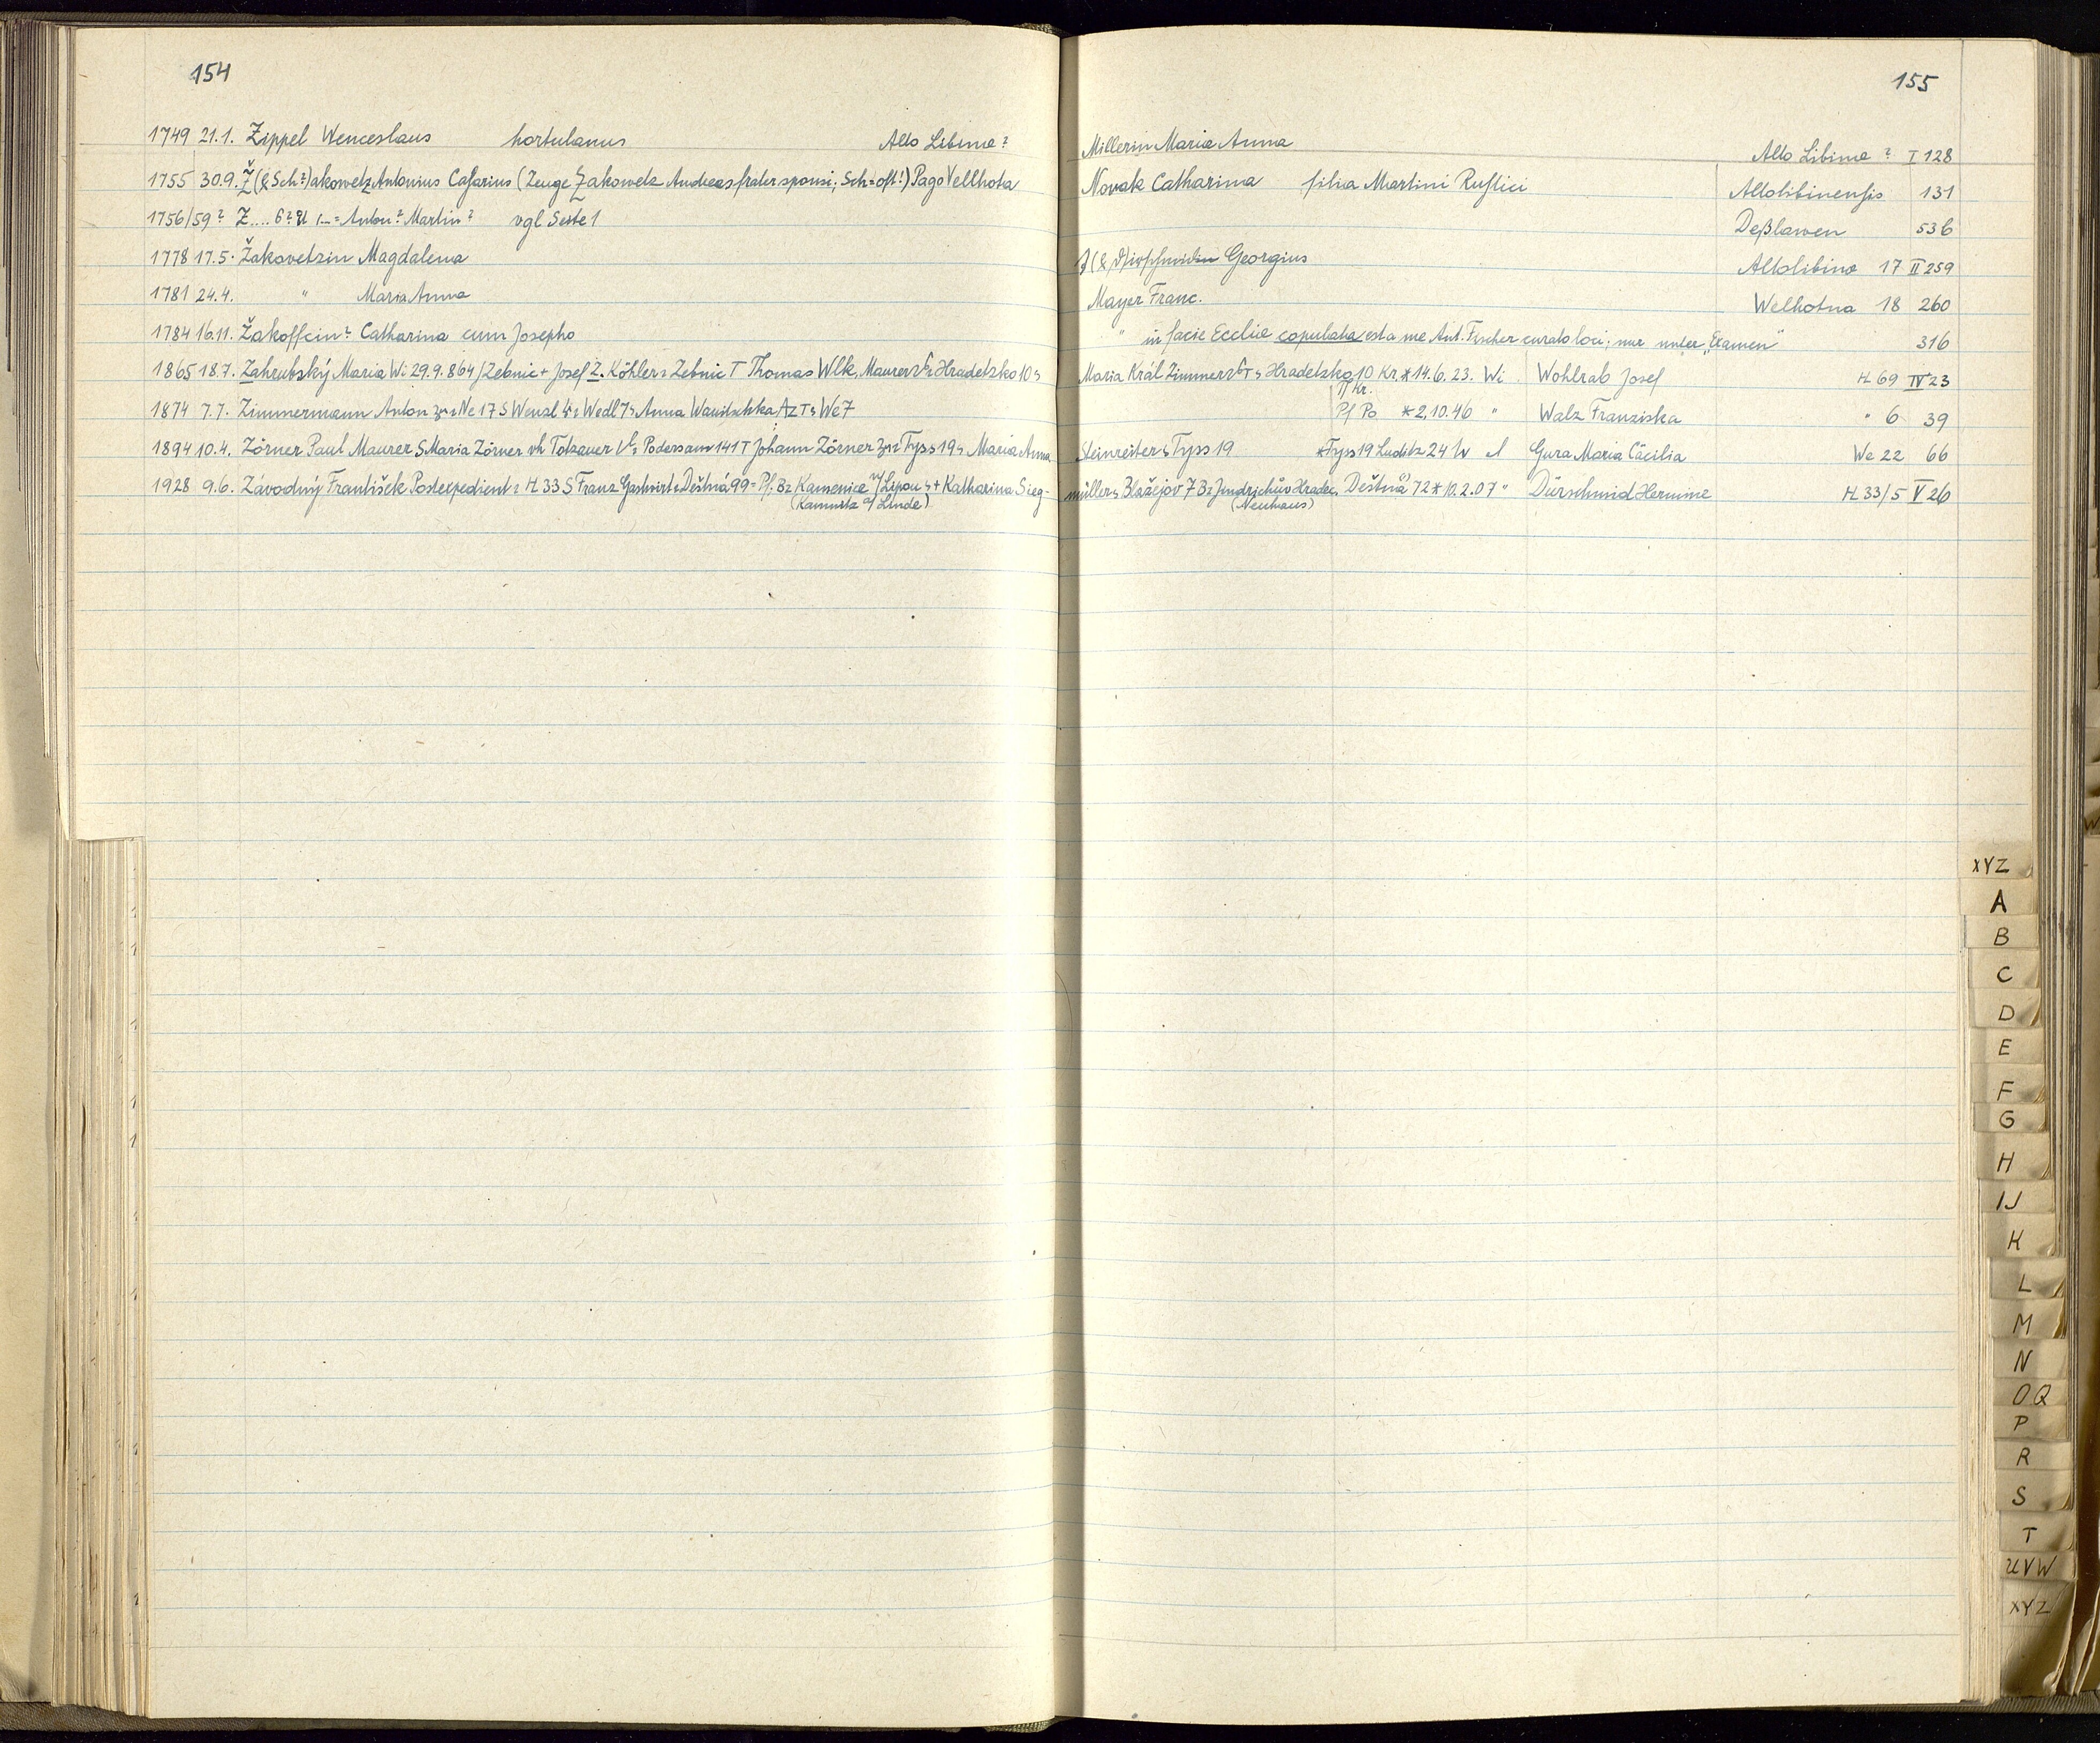 154
1749 21.1. Zippel Wenceslaus hortulanus Alto Libina?
1755 30.9. Ž(&Sch?)akowetz Antonius Casarius (Zeuge Žakowetz Andreas frater sponsi; Sch=oft!) Pago Vellhota
1756/59? Z....6? = Anton? Martin? vgl Seite 1
1778 17.5. Žakovetzin Magdalena
1781 24.4. " Maria Anna
1784 16.11. Žakoffcin? Catharina cum Josepho
1865 18.7. Zahrubský Maria Wi 29.9.864 / Zebnic + Josef Z. Köhler Zebnic T Thomas Wlk, Maurer Hradetzko 10
1874 7.7. Zimmermann Anton Ne 17 S Wenzl Wedl 7 Anna Wanitschka Az T We 7
1894 10.4. Zörner Paul Maurer S Maria Zörner vh Totzauer Podersam 141 T Johann Zörner Tyss 19 Maria Anna
1928 9.6. Závodný František Postexpedient H 33 S Franz Gastwirt Deštná 99 = Pf. Bz Kamenice n/Lipou + Katharina Sieg-
(Kamnitz a/Linde)
155
Millerin Maria Anna Alto Libina? I 128
Novak Catharina filia Martini Rustici Altolibinensis 131
Deßlawen 536
Georgius Altolibina 17 II 259
Mayer Franc. Welhotna 18 260
" in facie Eccliæ copulata est a me Ant. Fischer curato loci; nur unter "Examen" 316
Maria Král Hradetzko 10 Kr. * 14.6.23. Wi Wohlrab Josef H 69 IV 23
Kr.
Pf Po * 2.10.46 " Walz Franziska " 6 39
Steinreiter Tyss 19 * Tyss 19 Luditz 24 W l Gura Maria Cäcilia We 22 66
müller Blažejov 7 Bz Jindrichův Hradec, Deštná 72 * 10.2.07 " Dürschmid Hermine H 33/5 V 26
(Neuhaus)
XYZ
A
B
C
D
E
F
G
H
IJ
K
L
M
N
OQ
P
R
S
T
UVW
XYZ